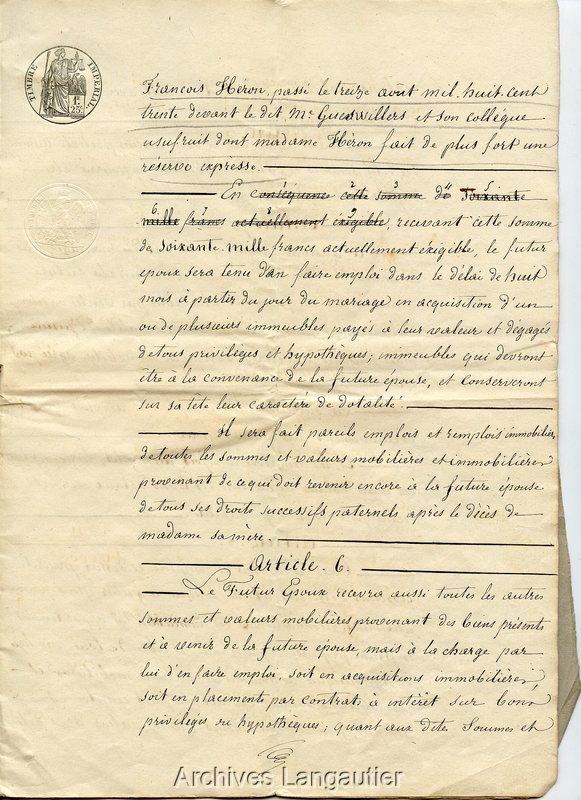 TIMBRE IMPÉRIAL
1F 25c
François Héron, passé le treize août mil. huit cent
trente devant le dit Me Guenwillers et son collégue
usufruit dont madame Héron fait de plus fort une
réserve expresse.
En conséquence cette somme de soixante
mille francs actuellement exigible, recevant cette somme
de soixante mille francs actuellement exigible, le futur
époux sera tenu d'en faire emploi dans le délai de huit
mois à partir du jour du mariage en acquisition d'un
ou de plusieurs immeubles payés à leur valeur et dégagés
de tous privilèges et hypothèques; immeubles qui devront
être à la convenance de la future épouse, et conserveront
sur sa tête leur caractère de dotalité.
Il sera fait pareils emplois et remplois immobiliers
de toutes les sommes et valeurs mobilières et immobilières
provenant de ce qui doit revenir encore à la future épouse
de tous ses droits successifs paternels après le décès de
madame sa mère.
Article. 6.
Le Futur Epoux recevra aussi toutes les autres
sommes et valeurs mobilières provenant des biens présents
et à venir de la future épouse, mais à la charge par
lui d'en faire emploi, soit en acquisitions immobilières,
soit en placements par contrats à intérêt sur bons
privilèges ou hypothèques; quant aux dites sommes et
Archives Langautier